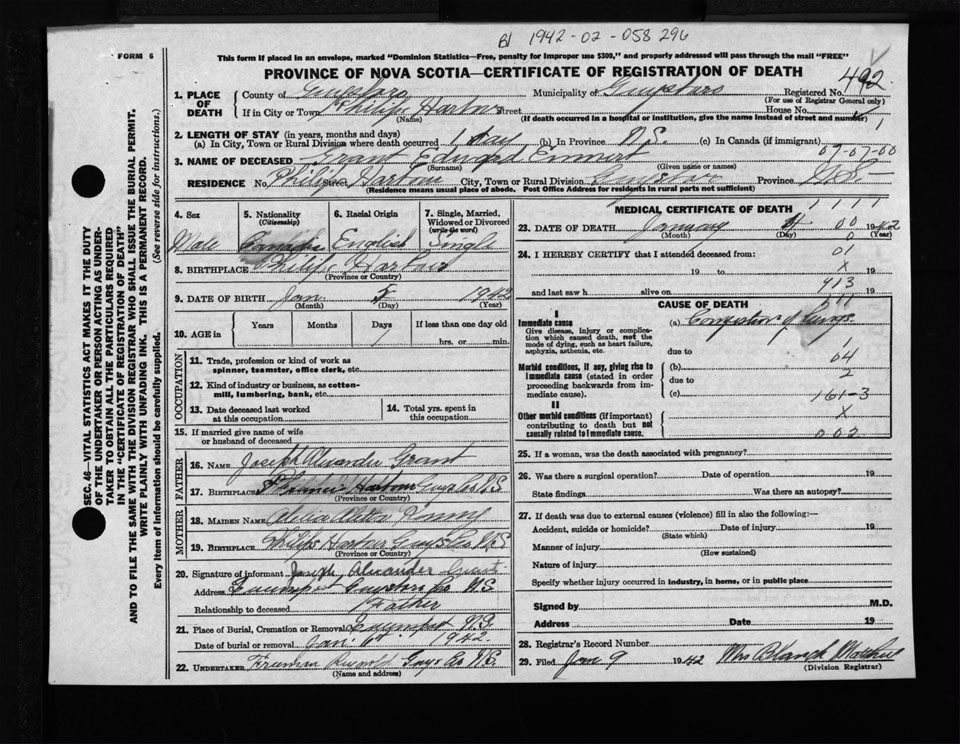 B1 1942-02-058296
FORM 6
This form if placed in an envelope, marked "Dominion Statistics—Free, penalty for improper use $300," and properly addressed will pass through the mail "FREE"
PROVINCE OF NOVA SCOTIA—CERTIFICATE OF REGISTRATION OF DEATH
SEC. 46—VITAL STATISTICS ACT MAKES IT THE DUTY
OF THE UNDERTAKER OR PERSON ACTING AS UNDER-
TAKER TO OBTAIN ALL THE PARTICULARS REQUIRED
IN THE "CERTIFICATE OF REGISTRATION OF DEATH"
AND TO FILE THE SAME WITH THE DIVISION REGISTRAR WHO SHALL ISSUE THE BURIAL PERMIT.
WRITE PLAINLY WITH UNFADING INK. THIS IS A PERMANENT RECORD.
Every item of information should be carefully supplied. (See reverse side for instructions.)
1. PLACE OF DEATH
County of Guysboro Municipality of Guysboro Registered No. 492
(For use of Registrar General only)
If in City or Town Philips Harbor Street House No.
(Name) (If death occurred in a hospital or institution, give the name instead of street and number)
1
2. LENGTH OF STAY (in years, months and days)
(a) In City, Town or Rural Division where death occurred 1 day (b) In Province N.S. (c) In Canada (if immigrant)
07-07-00
3. NAME OF DECEASED Grant Edward Emmert
(Surname) (Given name or names)
RESIDENCE No. Philips Street Harbor City, Town or Rural Division Guysboro Province N.S.
(Residence means usual place of abode. Post Office Address for residents in rural parts not sufficient)
4. Sex Male
5. Nationality (Citizenship) Canadian
6. Racial Origin English
7. Single, Married, Widowed or Divorced (write the word) Single
8. BIRTHPLACE Philips Harbor
(Province or Country)
9. DATE OF BIRTH Jan 1942
(Month) (Day) (Year)
10. AGE in Years Months Days If less than one day old
hrs. or min.
OCCUPATION
11. Trade, profession or kind of work as
spinner, teamster, office clerk, etc.
12. Kind of industry or business, as cotton-
mill, lumbering, bank, etc.
13. Date deceased last worked
at this occupation
14. Total yrs. spent in
this occupation
15. If married give name of wife
or husband of deceased
FATHER
16. NAME Joseph Alexander Grant
17. BIRTHPLACE Harbor Guysboro N.S
(Province or Country)
MOTHER
18. MAIDEN NAME
19. BIRTHPLACE Philips Harbor Guysboro N.S
(Province or Country)
20. Signature of informant Joseph Alexander Grant
Address Guysboro Co N.S
Relationship to deceased Father
21. Place of Burial, Cremation or Removal N.S.
Date of burial or removal Jan. 6th 1942.
22. UNDERTAKER Guys Co N.S.
(Name and address)
MEDICAL CERTIFICATE OF DEATH
1 1 1 1
23. DATE OF DEATH January 00 1942
(Month) (Day) (Year)
0
24. I HEREBY CERTIFY that I attended deceased from:
01
19 to X 19
913
and last saw h alive on 19
CAUSE OF DEATH
I
Immediate cause
Give disease, injury or complica-
tion which caused death, not the
mode of dying, such as heart failure,
asphyxia, asthenia, etc.
(a) Congestion of lungs
1
due to
04
Morbid conditions, if any, giving rise to
immediate cause (stated in order
proceeding backwards from im-
mediate cause).
(b)
2
due to
(c) 161-3
II
Other morbid conditions (if important)
contributing to death but not
causally related to immediate cause.
X
002
25. If a woman, was the death associated with pregnancy?
26. Was there a surgical operation? Date of operation 19
State findings Was there an autopsy?
27. If death was due to external causes (violence) fill in also the following:—
Accident, suicide or homicide? Date of injury 19
(State which)
Manner of injury
(How sustained)
Nature of injury
Specify whether injury occurred in industry, in home, or in public place
Signed by M.D.
Address Date 19
28. Registrar's Record Number
29. Filed Jan 9 1942 Mrs Blanch
(Division Registrar)